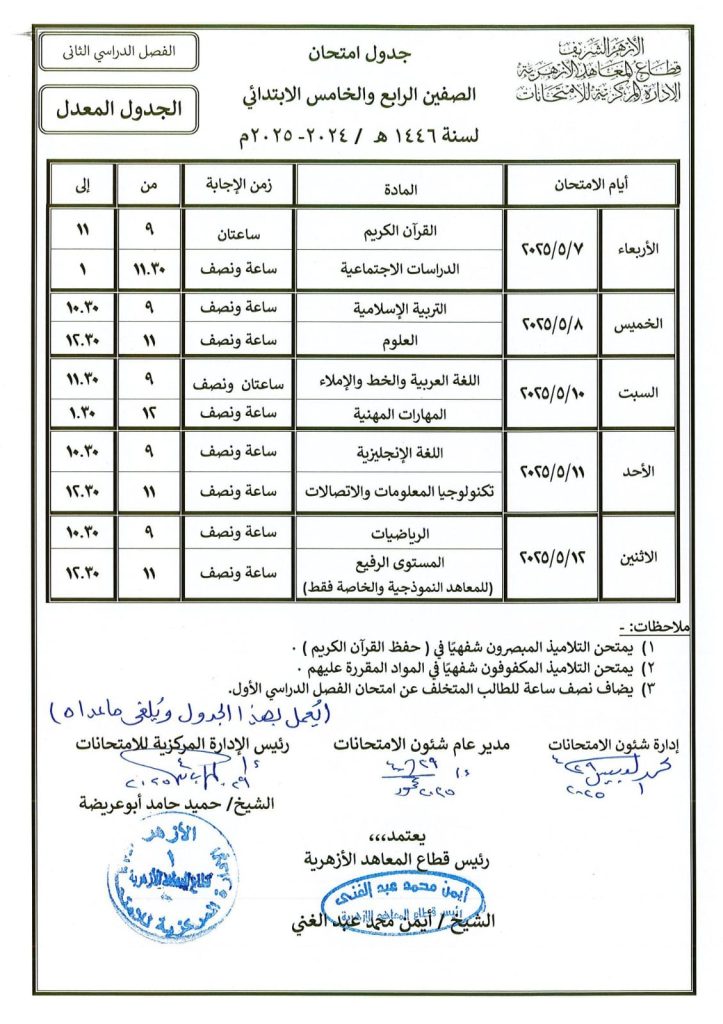 الأزهر الشريف
قطاع المعاهد الأزهرية
الإدارة المركزية للامتحانات
جدول امتحان
الصفين الرابع والخامس الابتدائي
لسنة ١٤٤٦ هـ / ٢٠٢٤- ٢٠٢٥م
الفصل الدراسي الثانى
الجدول المعدل
أيام الامتحان المادة زمن الإجابة من إلى
الأربعاء ٢٠٢٥/٥/٧ القرآن الكريم ساعتان ٩ ١١
الدراسات الاجتماعية ساعة ونصف ١١.٣٠ ١
الخميس ٢٠٢٥/٥/٨ التربية الإسلامية ساعة ونصف ٩ ١٠.٣٠
العلوم ساعة ونصف ١١ ١٢.٣٠
السبت ٢٠٢٥/٥/١٠ اللغة العربية والخط والإملاء ساعتان ونصف ٩ ١١.٣٠
المهارات المهنية ساعة ونصف ١٢ ١.٣٠
الأحد ٢٠٢٥/٥/١١ اللغة الإنجليزية ساعة ونصف ٩ ١٠.٣٠
تكنولوجيا المعلومات والاتصالات ساعة ونصف ١١ ١٢.٣٠
الاثنين ٢٠٢٥/٥/١٢ الرياضيات ساعة ونصف ٩ ١٠.٣٠
المستوى الرفيع ساعة ونصف ١١ ١٢.٣٠
(للمعاهد النموذجية والخاصة فقط)
ملاحظات: -
١) يمتحن التلاميذ المبصرون شفهيًا في ( حفظ القرآن الكريم ) ٠
٢) يمتحن التلاميذ المكفوفون شفهيًا في المواد المقررة عليهم ٠
٣) يضاف نصف ساعة للطالب المتخلف عن امتحان الفصل الدراسي الأول.
(يُعمل بهذا الجدول ويُلغى ما عداه)
إدارة شئون الامتحانات
مدير عام شئون الامتحانات
رئيس الإدارة المركزية للامتحانات
٢٠٢٥
٢٩
٢٠٢٥
٢٩
٢٠٢٥
الشيخ/ حميد حامد أبوعريضة
يعتمد،،،
رئيس قطاع المعاهد الأزهرية
أيمن محمد عبد الغنى
رئيس قطاع المعاهد الأزهرية
الشيخ / أيمن محمد عبد الغني
الأزهر
١
قطاع المعاهد الأزهرية